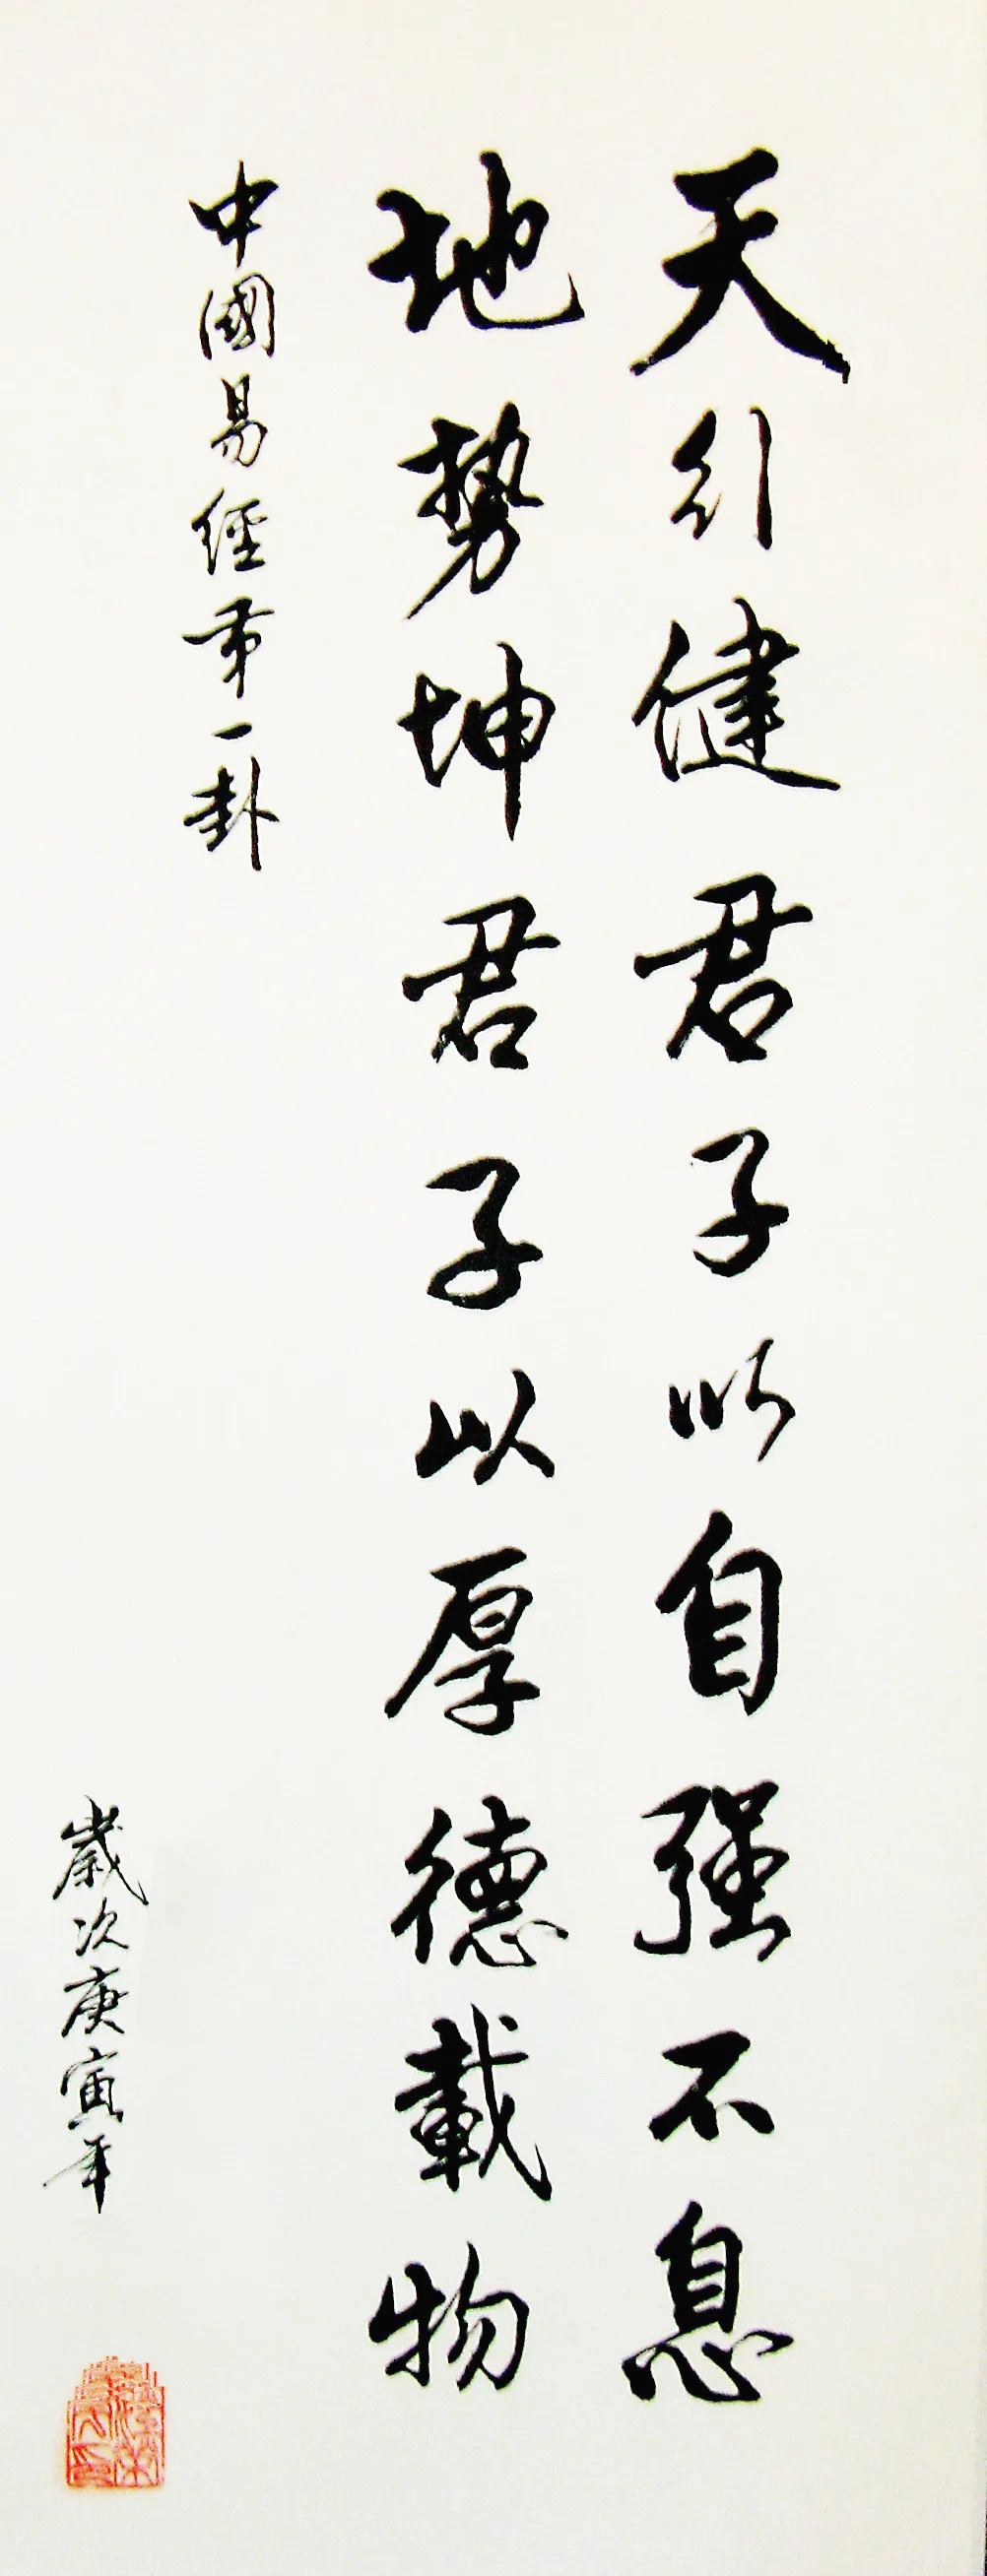 天行健君子以自强不息
地勢坤君子以厚德載物
中國易經第一卦
歲次庚寅年